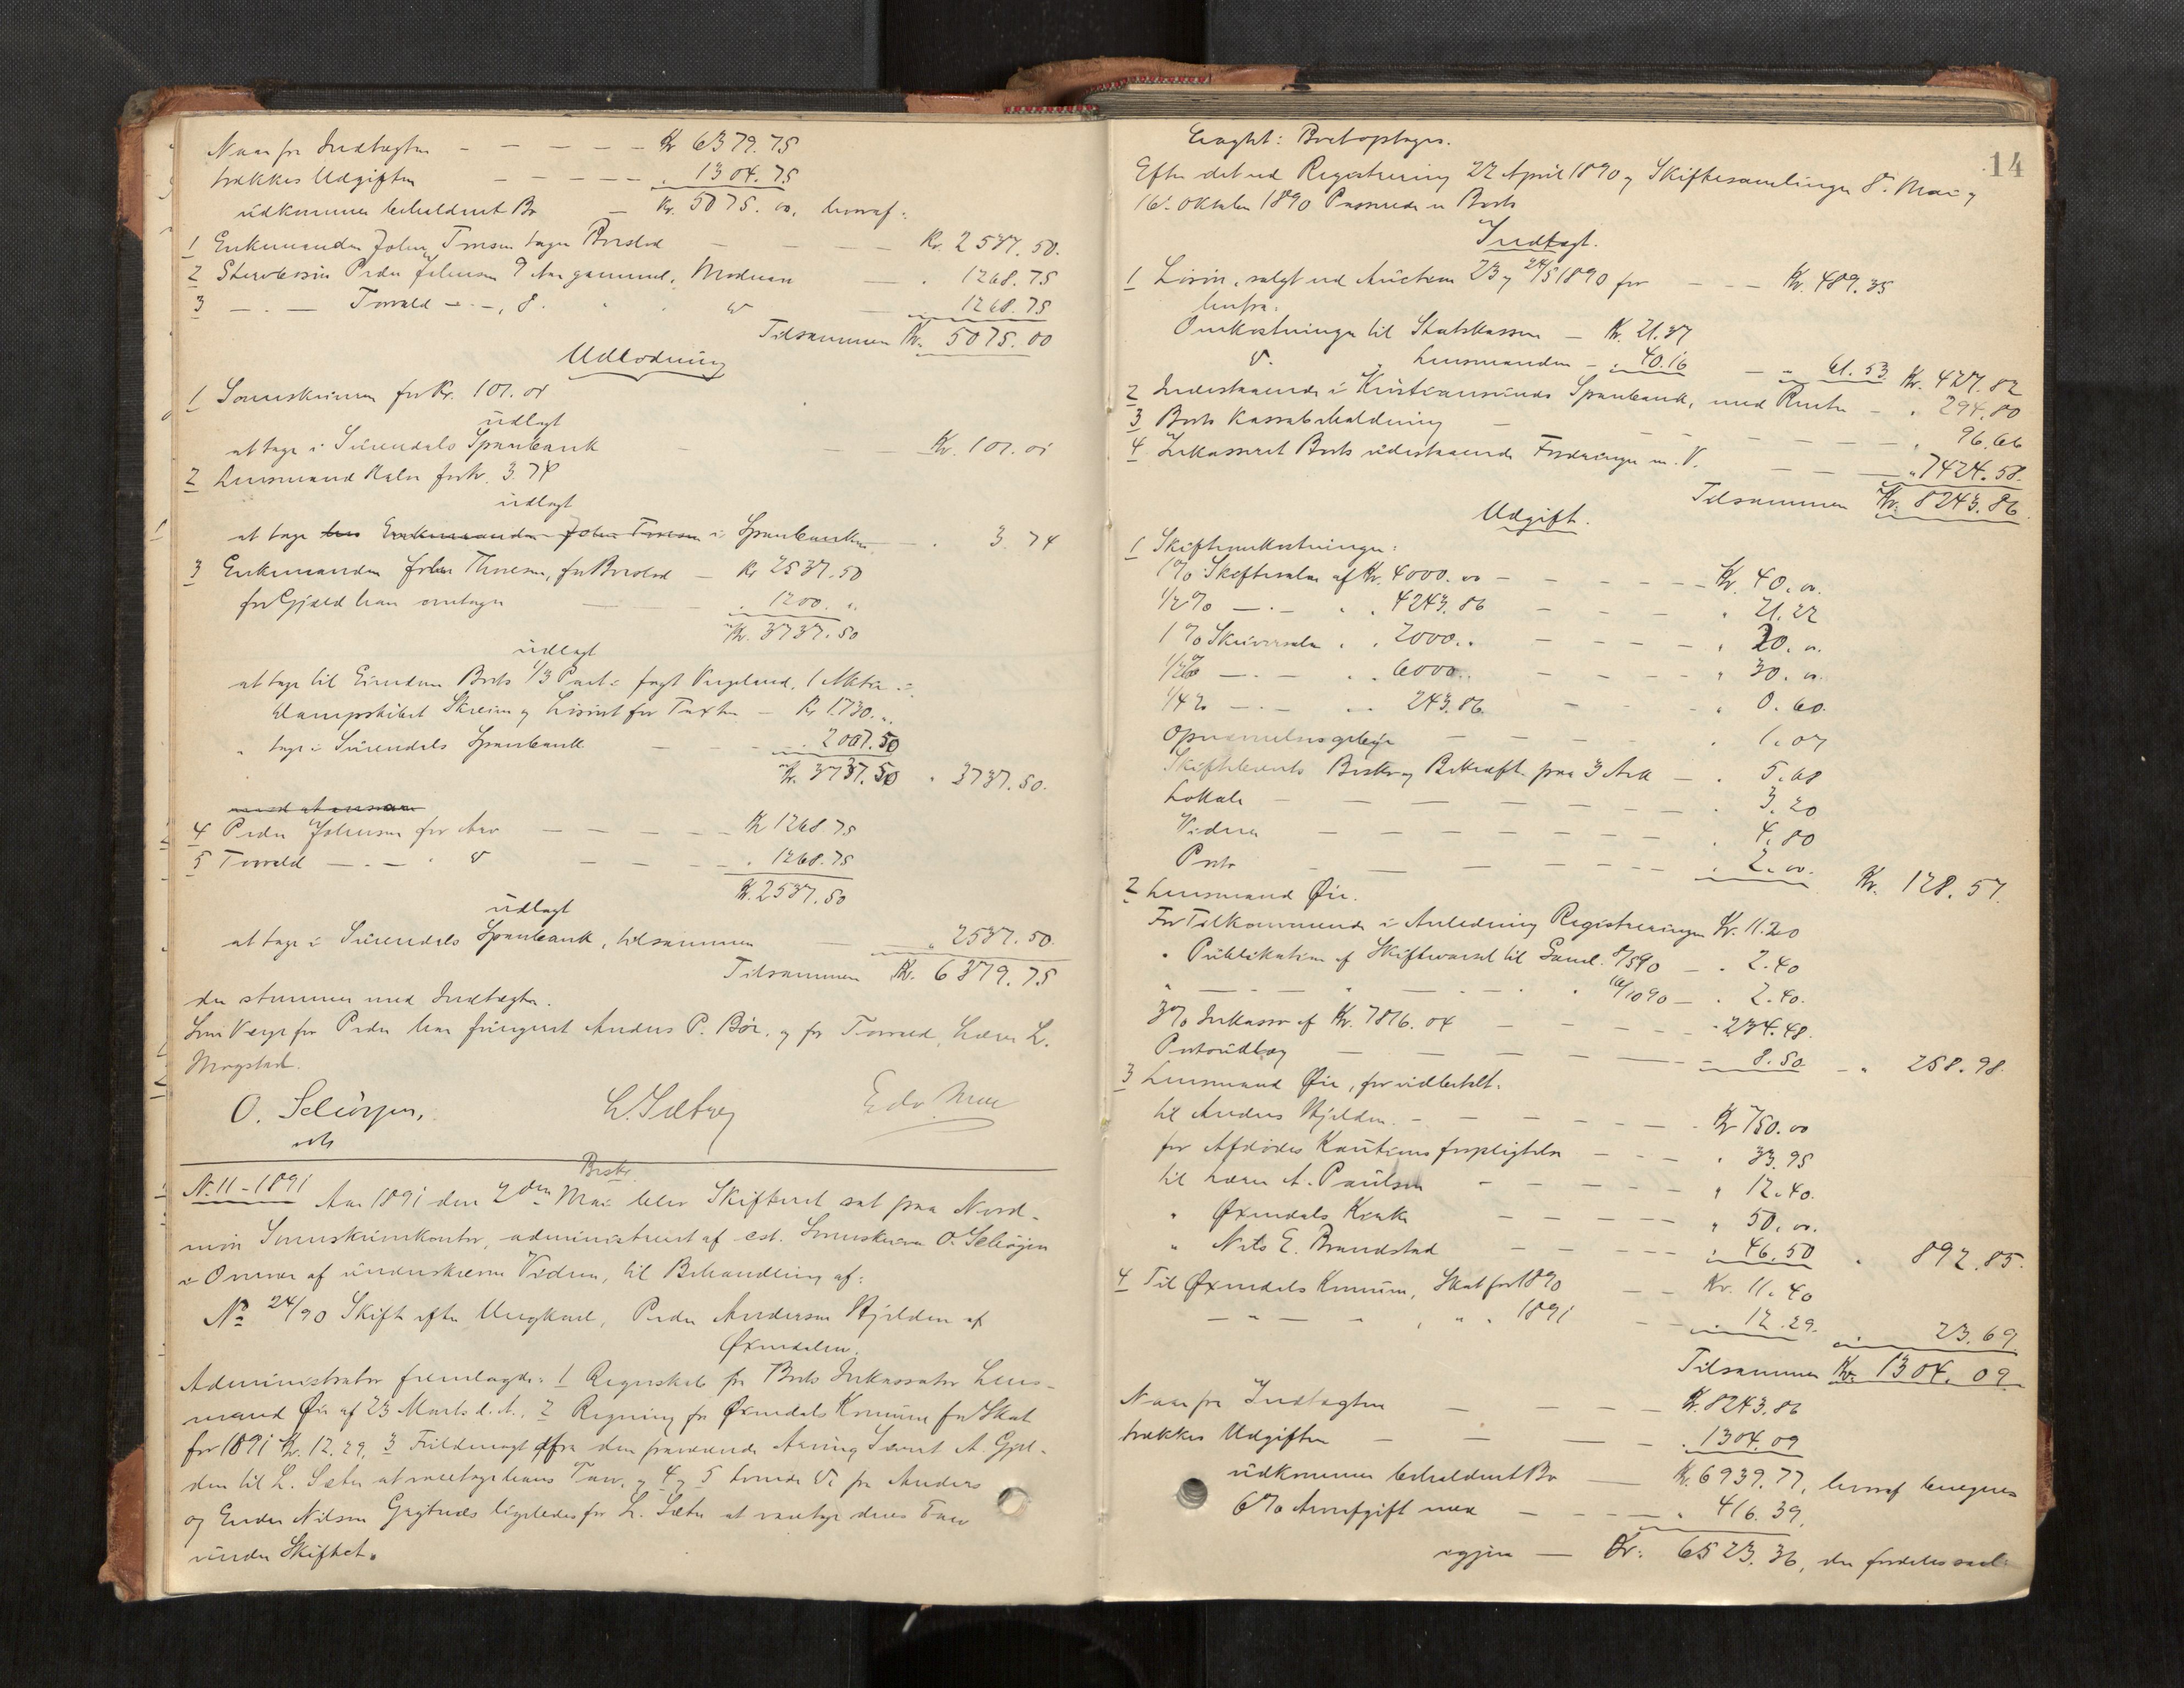 Naar fra Indtægten — — — — — Kr 6379.75
trækkes Udgiften — — — — — " 1304.75
udkommer beholdent Bo — Kr. 5075.00, hvoraf:
1 Enkemanden John Toresen tager Boeslod — — — — Kr. 2537.50.
2 Stervbosøn Peder Johnsen 9 Aar gammel, Modrearv — " 1268.75
3 — " — Torvald — " —, 8. " " — 1268.75
Tilsammen Kr. 5075.00
Udlodning
1 Sorenskriveren for Kr. 101.01
udlagt
at tage i Surendals Sparebank — — — Kr. 101.01
2 Lensmand Halse for kr. 3.74
udlagt
at tage hos Enkemanden John Toresen i Sparebanken — " 3.74
3 Enkemanden John Thoresen, for Boeslod — Kr 2537.50
for Gjæld han overtager — " 1200. "
Kr. 3737.50
udlagt
at tage til Eiendom Boets 1/3 Part i Jagt Vergeland, 1 Aktie i
Dampskibet Skreien og Løsøret for Taxten — Kr 1730. "
" tage i Surendals Sparebank — — " 2007.50
Kr. 3737.50 " 3737.50.
4 Peder Johnsen for Arv — — — — Kr 1268.75
5 Torvald — " — " — — — " 1268.75
Kr. 2537.50
udlagt
at tage i Surendals Sparebank, tilsammen — " 2537.50.
Tilsammen Kr. 6379.75
der stemmer med Indtægten.
Som Verge for Peder har fungeret Anders P. Bør, og for Torvald, Lærer L.
Mogstad.
O. Solbjørgen,
N. 11 - 1891
Aar 1891 den 2den Mai blev Skifteret sat paa Nord-
møre Sorenskriverkontor, administreret af cst. Sorenskriver O.
i Overvær af underskrevne Vidner, til Behandling af:
No 24/90 Skifte efter Ungkarl, Peder Andersen Hjelden af
Øxendalen.
Administrator fremlagde: 1 Regnskab fra Boets Inkassator Lens-
mand Øie af 23 Marts d. A., 2 Regning fra Øxendals Komune for Skat
for 1891 Kr. 12.29, 3 Fuldmagt fra den fraværende Arving A.
den til L. Sæter at modtage hans Tarv, og 4 og 5 fra Anders
og Endre Nilsen ligeledes for L. Sæter at varetage deres Tarv
under Skiftet.
14
Eragtet: Boet optages.
Efter det ved Registrering 22 April 1890 og Skiftesamlinger 8de Mai og
16de Oktober 1890 Passerede er Boets
Indtægt.
1 Løsøre, solgt ved Auction 23 og 24/5 1890 for — — Kr. 489.35
herfra:
Omkostninger til Statskassen — Kr. 21.37
" Lensmanden — " 40.16 — " 61.53 Kr. 427.82
2 Indestaaende i Kristiansunds Sparebank, med Renter — " 294.80
3 Boets Kassabeholdning — — — — — " 96.66
4 Inkasseret Boets udestaaende Fordringer m. V. — — " 7424.58.
Tilsammen Kr. 8243.86.
Udgift.
1 Skifteomkostninger:
1% Skiftesalær af Kr. 4000.00 — — — — Kr. 40.00.
1/2% — " — " " 4243.86 — — — " 21.22
1% Skriversalær " " 2000. " — — — " 20.00.
1/2% — " — " " 6000. " — — — " 30.00.
1/4% — " — " " 243.86 — — " 0.60.
Opnævnelsesgebyr — — — — — " 1.07
Skiftebrevets Beskr. og Bekræft. paa 3 Ark — " 5.68
Lokale — — — — — — " 3.20
Vidner — — — — — — " 4.80
Porto — — — — — " 2.00. Kr. 128.57.
2 Lensmand Øie.
For Tilkommende i Anledning Registreringen Kr. 11.20
" Publikation af Skiftevarsel til Saml. 8/5 90 — " 2.40
" — " — " — " — " 16/10 90 — " 2.40.
3% Inkasso af Kr. 7816.04 — — — " 234.48.
Portoudlæg — — — — " 8.50 — " 258.98.
3 Lensmand Øie, for udbetalt.
til Anders Hjelden — — — — Kr 750.00
for Afdødes Kautionsforpligtelse — — — " 33.95
til Lærer A. Paulsen — — — — " 12.40.
" Øxendals Kirke — — — — " 50.00.
" Nils E. Brandstad — — — " 46.50 " 892.85.
4 Til Øxendals Komune, Skat for 1890 — — Kr. 11.40
— " — " " " 1891 — " 12.29. " 23.69
Tilsammen Kr. 1304.09
Naar fra Indtægten — — — — Kr. 8243.86
trækkes Udgiften — — — — " 1304.09
udkommer beholdent Bo — Kr. 6939.77, hvoraf beregnes
6% Arveafgift med — — — " 416.39,
igjen — Kr. 6523.36, der fordeles saal: